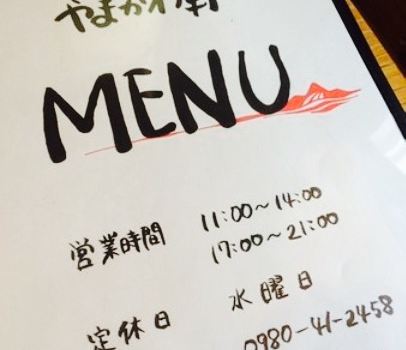 やまかわ軒
MENU
営業時間 11:00〜14:00
17:00〜21:00
定休日 水曜日
0980-41-2458